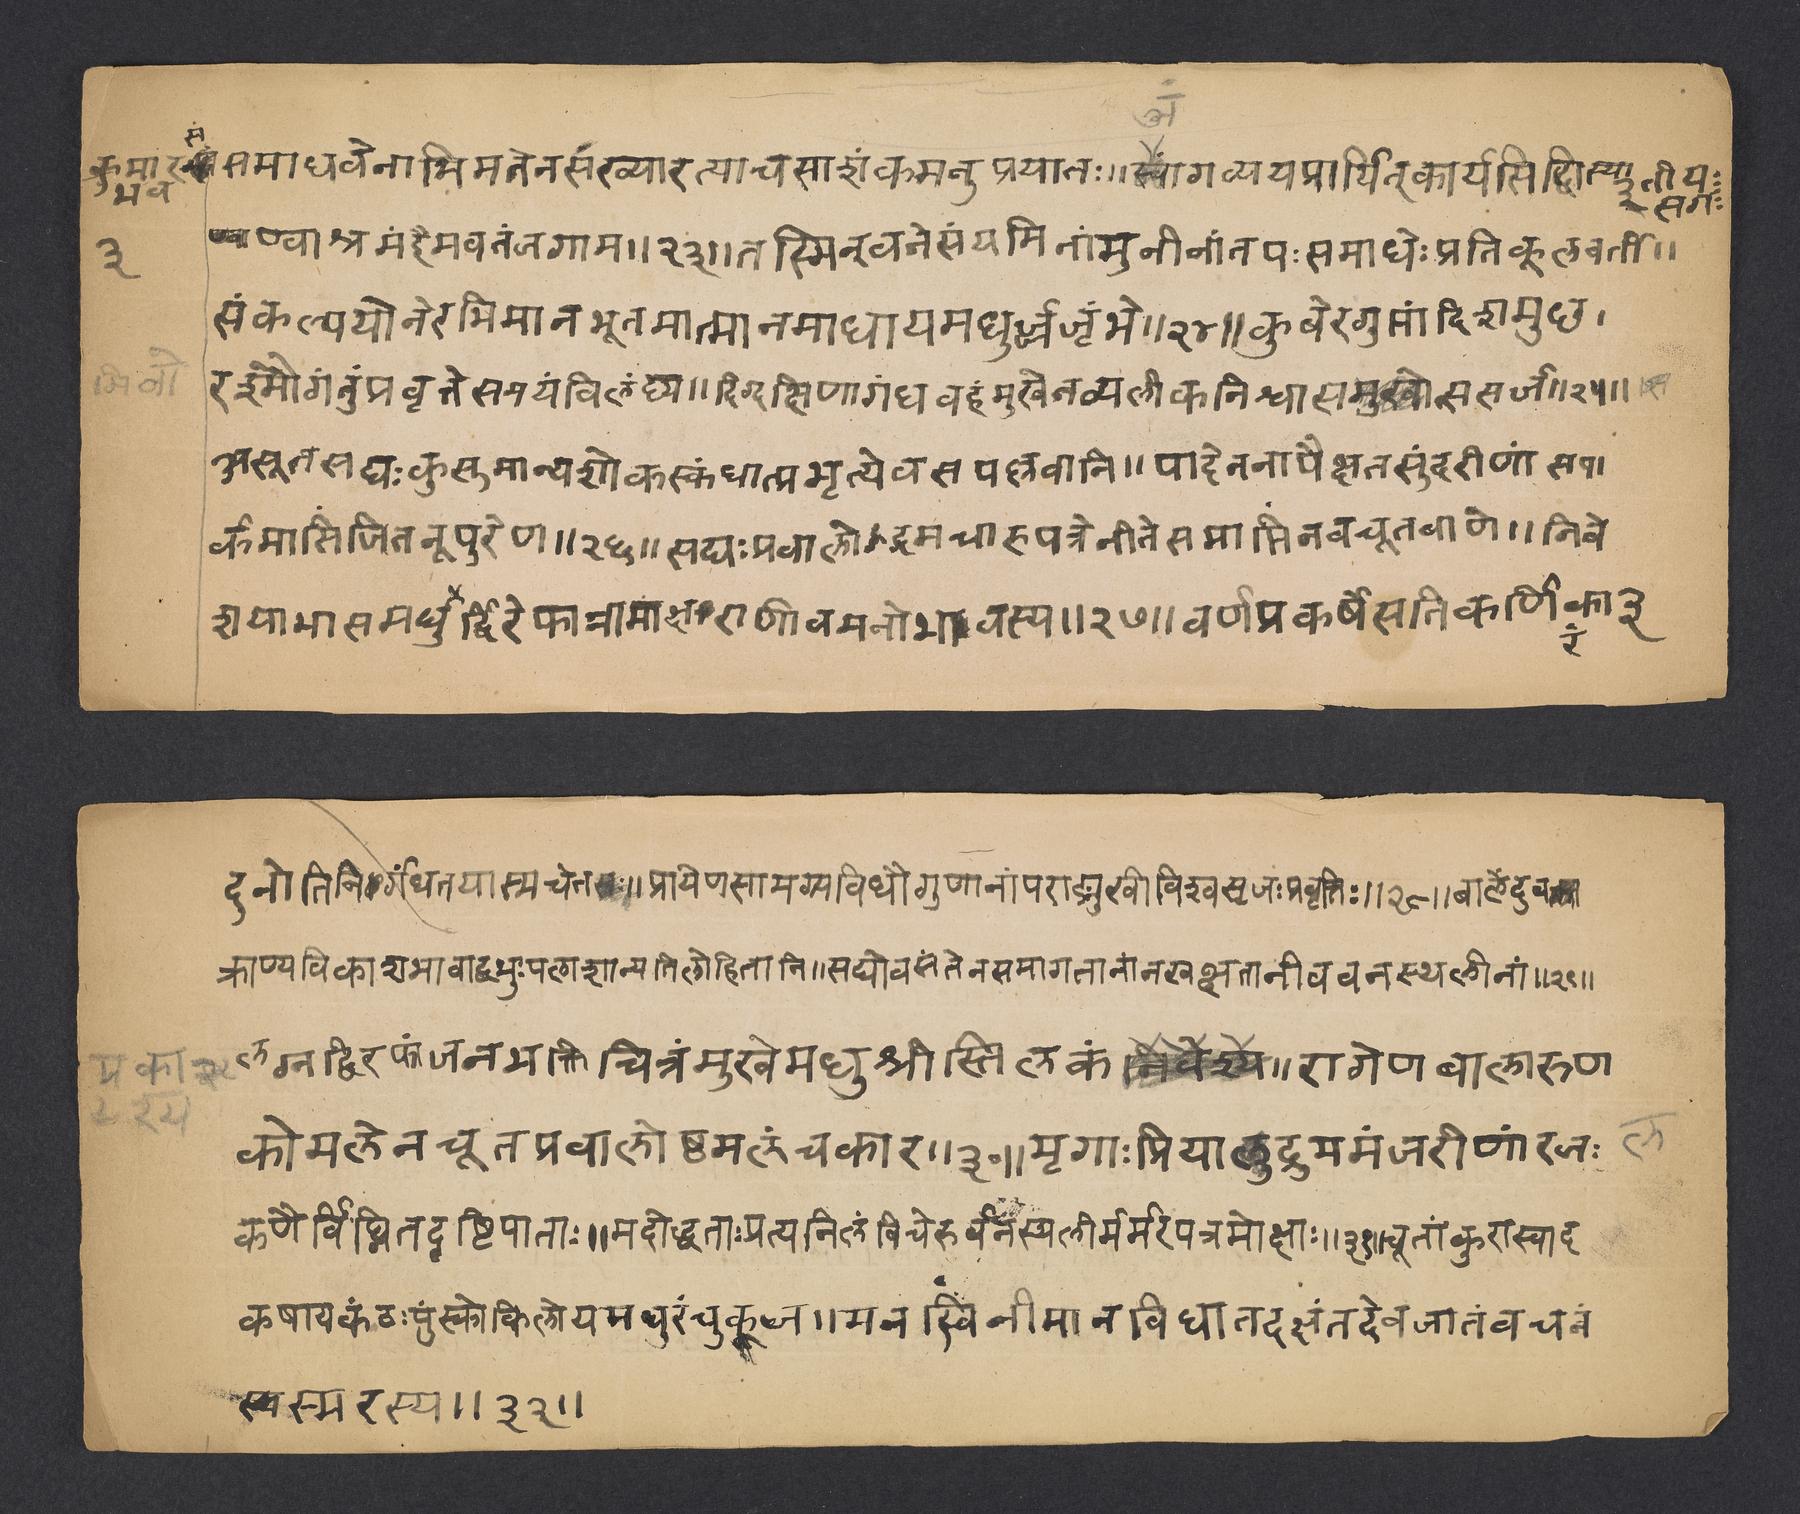 अं
कुमारसं
भव
३
समाधवेनाभिमतेनसख्यारत्याचसाशंकमनुप्रयातः॥ गव्ययप्रार्थितकार्यसिद्धिःस्था
तृतीयः
सर्गः
ण्वाश्रमंहैमवतंजगाम॥२३॥तस्मिन्वनेसंयमिनांमुनीनांतपःसमाधेःप्रतिकूलवर्ती॥
संकल्पयोनेरभिमानभूतमात्मानमाधायमधुर्जजृंभे॥२४॥कुबेरगुप्तांदिशमुछ।
भिनो
रश्मौगंतुंप्रवृत्तेसमयंविलंघ्य॥दिग्दक्षिणागंधवहंमुखेनव्यलीकनिश्वासमुखोत्ससर्ज॥२५॥
असूतसद्यःकुसुमान्यशोकस्कंधात्प्रभृत्येवसपल्लवानि॥पादेननापैक्षतसुंदरीणांसं
र्कमासिंजितनूपुरेण॥२६॥सद्यःप्रवालोद्गमचारुपत्रेनीतेसमाप्तिंनवचूतबाणे॥निवे
शयामासमधुर्द्विरेफान्नामाक्षराणीवमनोभवस्य॥२७॥वर्णप्रकर्षेसतिकर्णिका
रं
३
दुनोतिनिर्गंधितयास्मचेतः॥प्रायेणसामग्र्यविधौगुणानांपराङ्मुखीविश्वसृजःप्रवृत्तिः॥२८॥बालेंदुव
क्राण्यविकाशभावाद्बभुःपलाशान्यतिलोहितानि॥सद्योवसंतेनसमागतानांनखक्षतानीववनस्थलीनां॥२९॥
लग्नद्विरेफांजनभक्तिचित्रंमुखेमधुश्रीस्तिलकंनिवेश्य॥रागेणबालारुण
प्रका
श्य
कोमलेनचूतप्रवालोष्ठमलंचकार॥३०॥मृगाःप्रियालुद्रुममंजरीणांरजः
ल
कणैर्विघ्नितदृष्टिपाताः॥मदोद्धताःप्रत्यनिलंविचेरुर्वनस्थलीर्मर्मरपत्रमोक्षाः॥३१॥चूतांकुरास्वाद
कषायकंठःपुंस्कोकिलोयमधुरंचुकूज॥मनस्विनीमानविघातदक्षंतदेवजातंवचनं
स्मरस्य॥३२॥